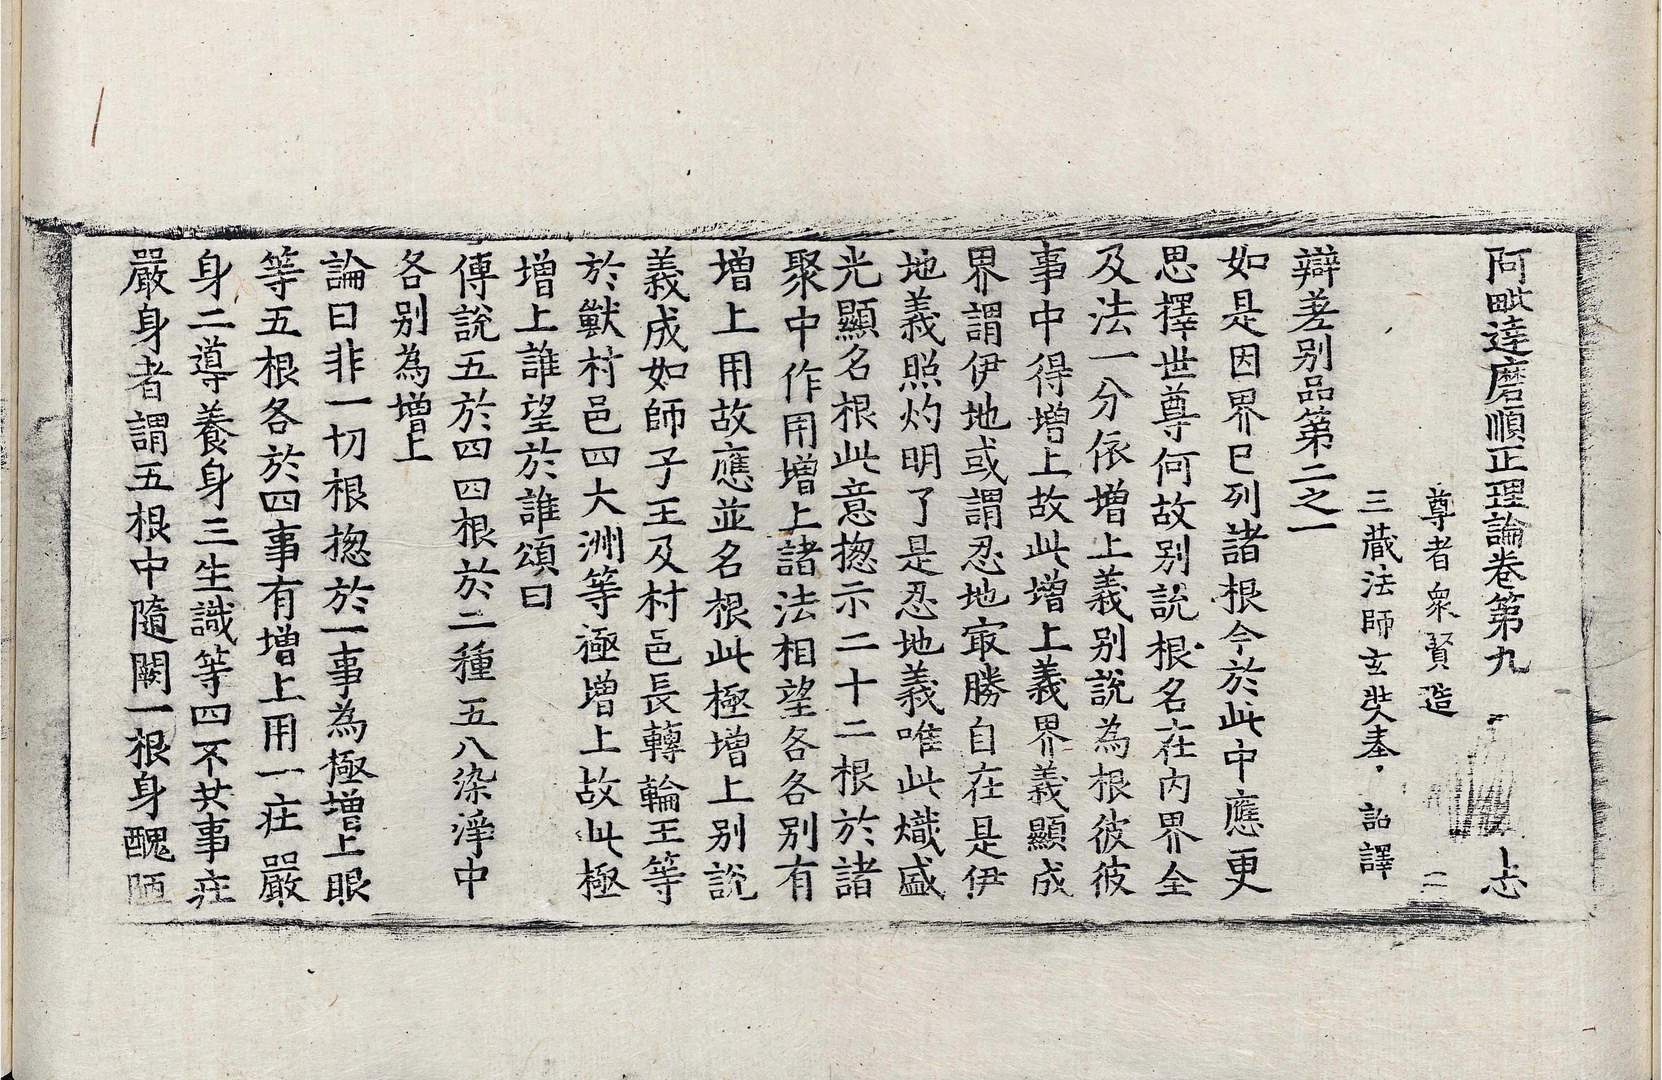 阿毗達磨順正理論卷第九 上 忐
尊者衆賢造 二
三藏法師玄奘奉 詔譯
辯差别品第二之一
如是因界已列諸根今於此中應更
思擇世尊何故别説根名在内界全
及法一分依增上義别説為根彼彼
事中得增上故此增上義界義顯成
界謂伊地或謂忍地㝡勝自在是伊
地義照灼明了是忍地義唯此熾盛
光顯名根此意揔示二十二根於諸
聚中作用增上諸法相望各各别有
增上用故應並名根此極增上别説
義成如師子王及村邑長轉輪王等
於獸村邑四大洲等極增上故此極
增上誰望於誰頌曰
傳説五於四四根於二種五八染淨中
各别為增上
論曰非一切根揔於一事為極增上眼
等五根各於四事有增上用一莊嚴
身二導養身三生識等四不共事莊
嚴身者謂五根中隨闕一根身醜陋